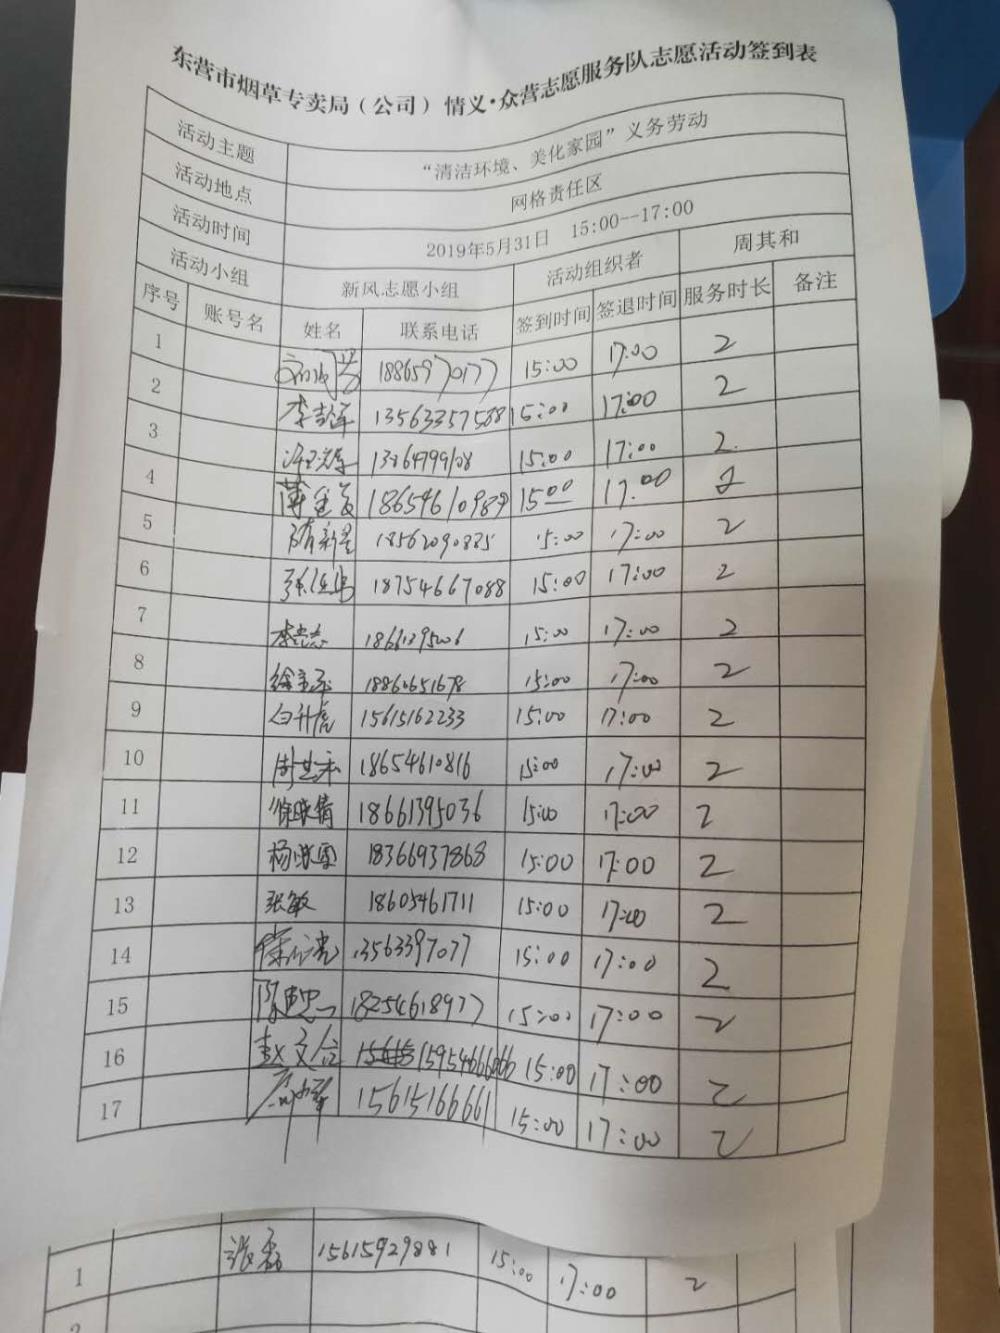 东营市烟草专卖局(公司)情义·众营志愿服务队志愿活动签到表
活动主题 “清洁环境、美化家园”义务劳动
活动地点 网格责任区
活动时间 2019年5月31日 15:00--17:00
活动小组 新风志愿小组 活动组织者 周其和
序号 账号名 姓名 联系电话 签到时间 签退时间 服务时长 备注
1 18865970177 15:00 17:00 2
2 13563357588 15:00 17:00 2
3 13864799108 15:00 17:00 2
4 15:00 17:00 2
5 隋新星 18562090885 15:00 17:00 2
6 18754667088 15:00 17:00 2
7 15:00 17:00 2
8 18860651678 15:00 17:00 2
9 白升虎 15615162233 15:00 17:00 2
10 周其和 18654610816 15:00 17:00 2
11 徐晓倩 18661395036 15:00 17:00 2
12 杨晓雪 18366937868 15:00 17:00 2
13 张敏 18605461711 15:00 17:00 2
14 13563397077 15:00 17:00 2
15 18254618977 15:00 17:00 2
16 赵文合 15954666066 15:00 17:00 2
17 15615166661 15:00 17:00 2
1 张磊 15615929881 15:00 17:00 2
2